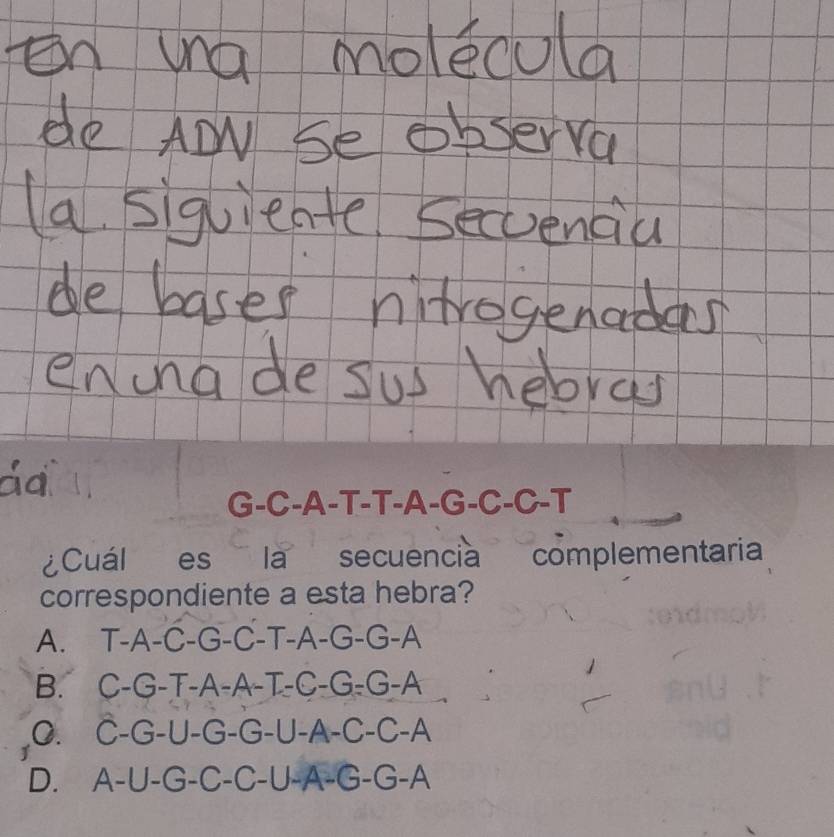 en una molécula
de ADN se observa
la siguiente secuencia
de bases nitrogenadas
en una de sus hebras
G-C-A-T-T-A-G-C-C-T
¿Cuál es la secuencia complementaria
correspondiente a esta hebra?
A. T-A-C-G-C-T-A-G-G-A
B. C-G-T-A-A-T-C-G-G-A
C. C-G-U-G-G-U-A-C-C-A
D. A-U-G-C-C-U-A-G-G-A